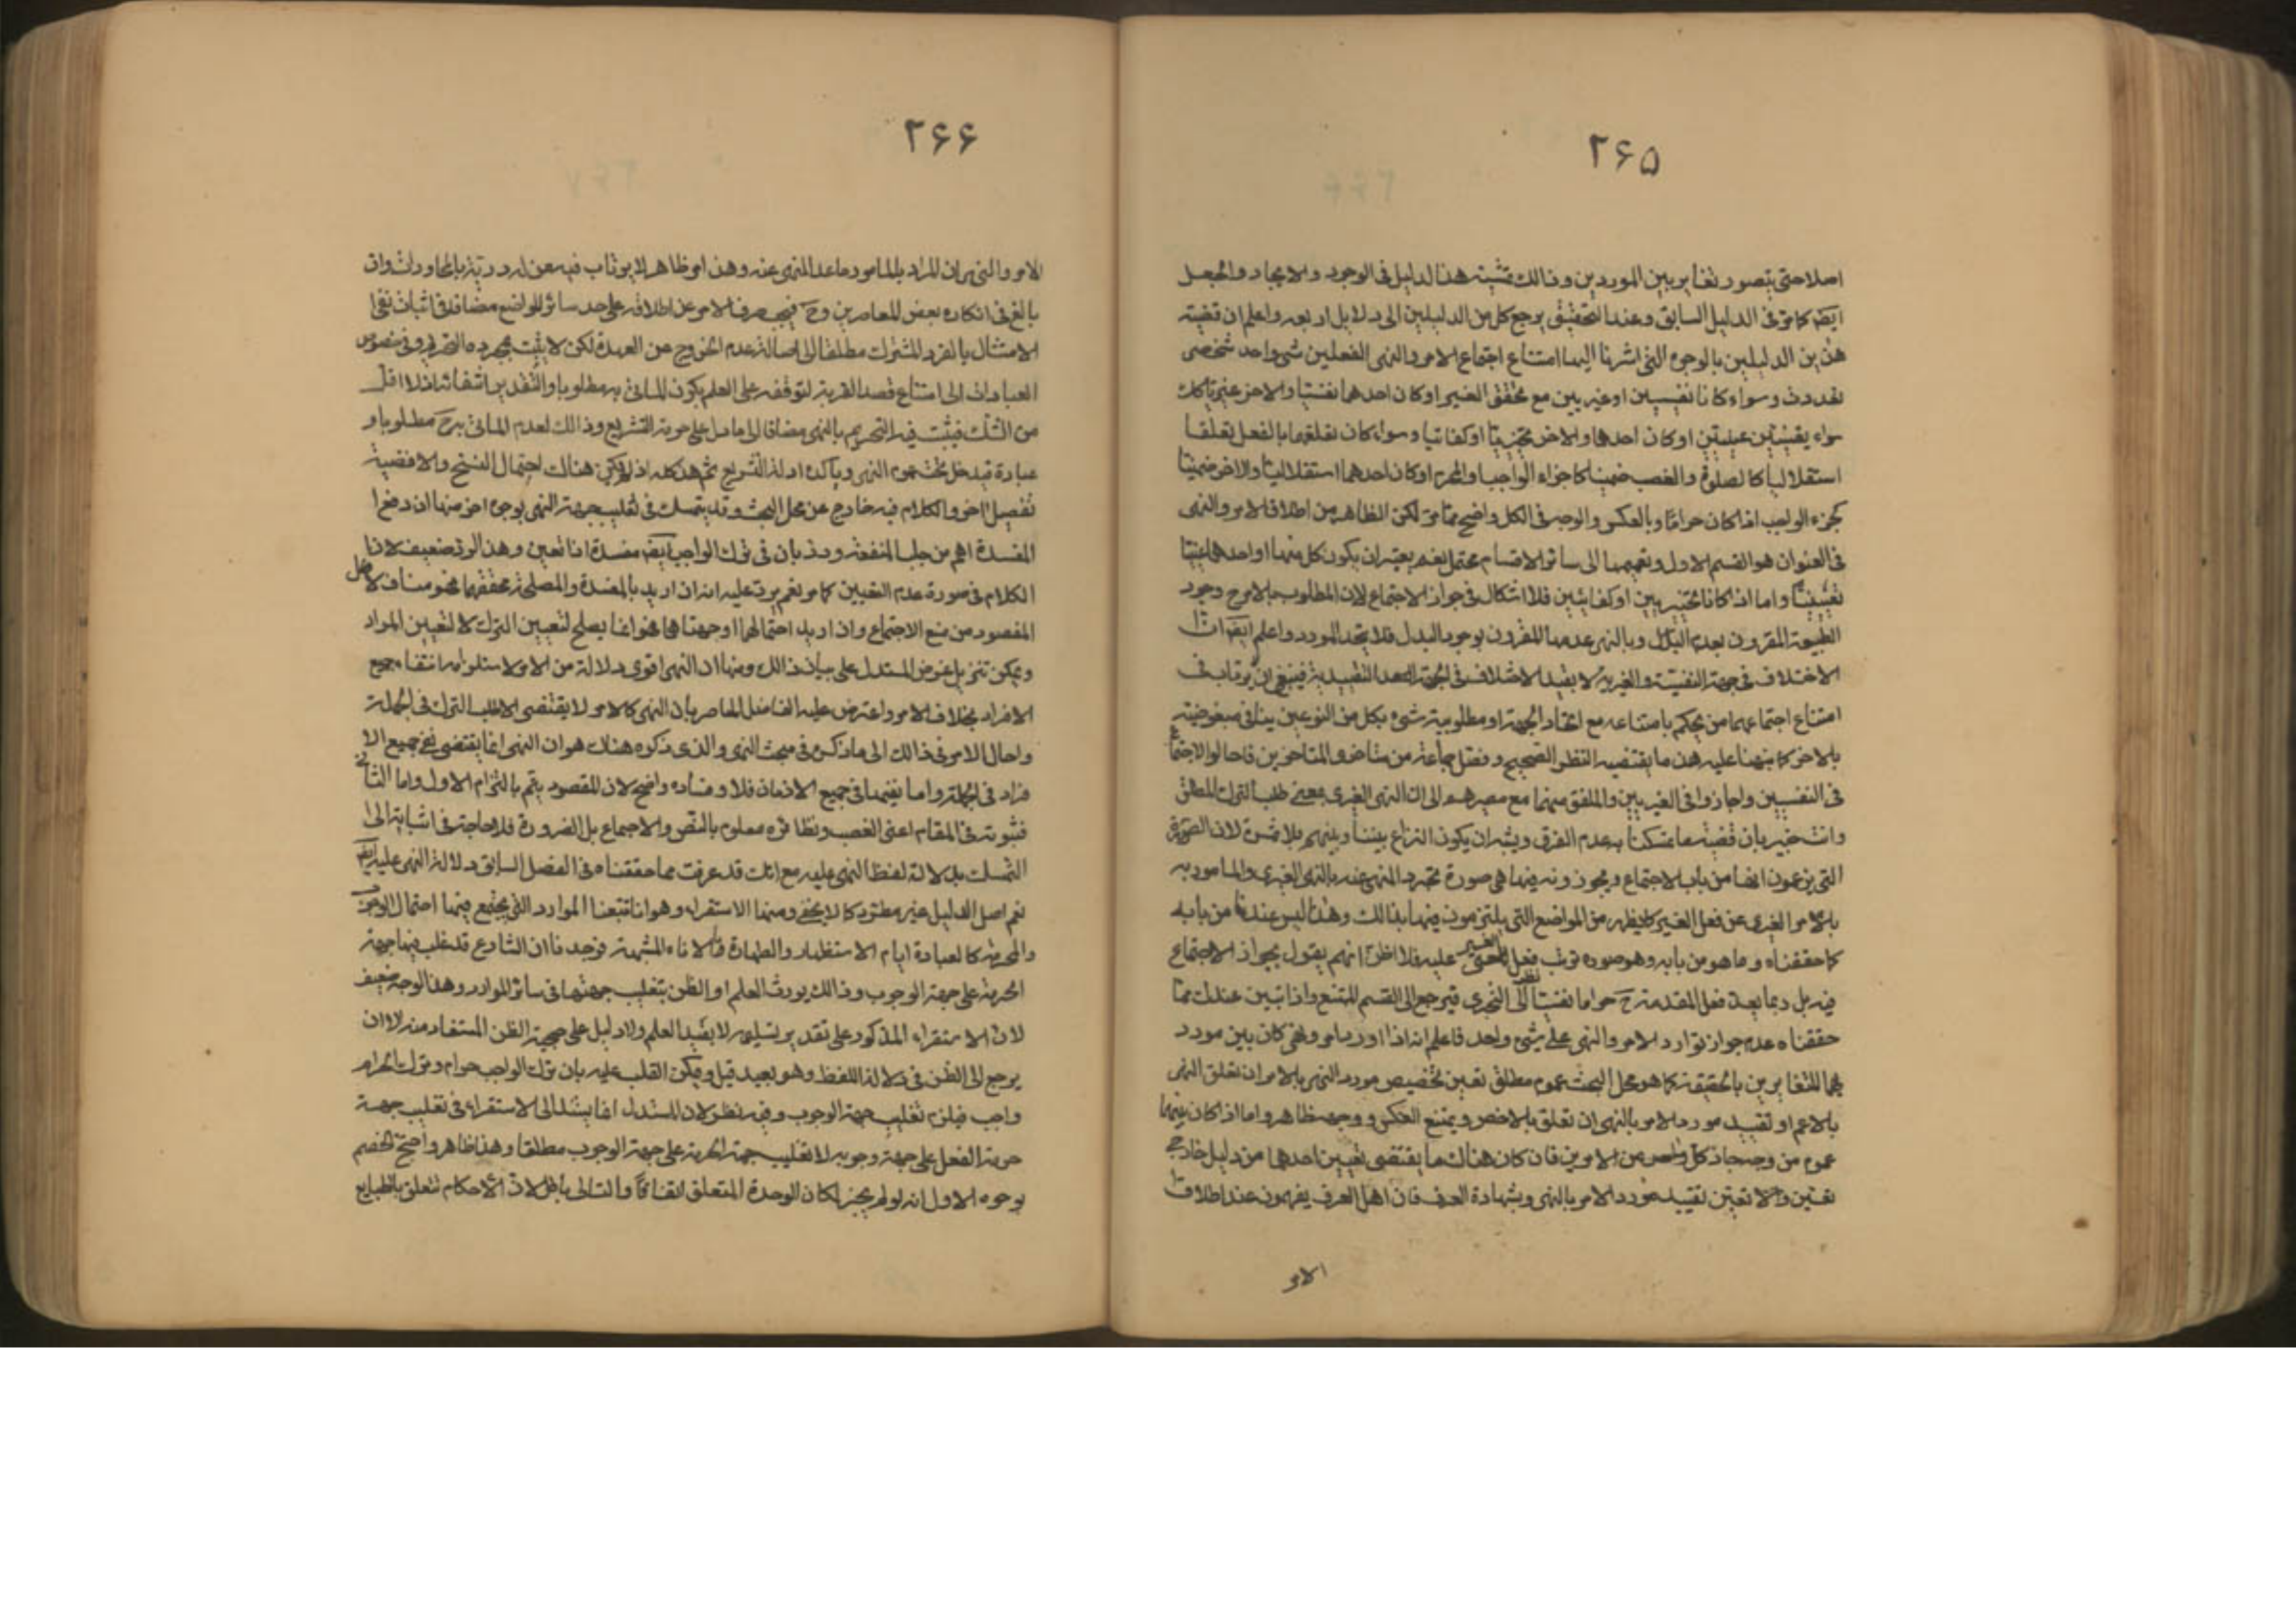 ۲۶۵
اصلا حتى يتصور تغاير بين الموردين وذالك تمشية هذا الدليل فى الوجود والايجاد والجعل
ايضا كما مر فى الدليل السابق وعند التحقيق يرجع كل من الدليلين الى دلايل اربعه واعلم ان قضية
هذين الدليلين بالوجوه التى اشرنا اليها امتناع اجتماع الامر والنهى الفعلين شئ واحد شخصى
سواء كانا نفسيين او غيريين مع تحقق الغير او كان احدهما نفسيا والاخر غيريا
سواء عينيين او كان احدهما والاخر تخييريا او كفائيا وسواء كان تعلقهما بالفعل تعلقا
استقلاليا كالصلوة والغصب ضمنيا كاجزاء الواجب والمحرم او كان احدهما استقلاليا والاخر ضمنيا
كجزء الواجب اذا كان حراما وبالعكس والوجه فى الكل واضح مما مر لكن الظاهر من اطلاق الامر والنهى
فى العنوان هو القسم الاول وتعميمها الى سائر الاقسام محتمل نعم يعتبر ان يكون كل منهما او احدهما عينيا
تعيينيا واما اذا كانا تخييريين او كفائيين فلا اشكال فى جواز الاجتماع لان المطلوب بالامر ح وجود
الطبيعة المقرون بعدم البدل وبالنهى عدمها المقرون بوجود البدل فلا يتحد المورد واعلم ايضا ان
الاختلاف فى جهة النفسية والغيرية لا يفيد الاختلاف فى الجهة التقييدية فينبغى ان يرتاب فى
امتناع اجتماعهما من يحكم بامتناعه مع اتحاد الجهة او مطلوبية شئ بكل من النوعين ينافى مبغوضيته
بالاخر كما نبهنا عليه هذا ما يقتضيه النظر الصحيح وفصل جماعة من متاخرى المتاخرين فاحالوا الاجتماع
فى النفسيين واجازوا فى الغيريين والملفق منهما مع مصيرهم الى ان النهى الغيرى بمعنى طلب الترك المطلق
وانت خبير بان قضية ما تمسكنا به عدم الفرق ويشبه ان يكون النزاع بيننا وبينهم بلا ثمرة لان الصورة
التى يزعمون انها من باب الاجتماع ويجوزونه فيها هى صورة تجرد المنهى عنه بالنهى الغيرى والمامور به
بالامر الغيرى عن فعل الغير كما يظهر من المواضع التى يلتزمون فيها بذالك وهذا ليس عندنا من بابه
كما حققناه وما هو من بابه وهو صورة ترتب فعل الغير عليه فلا اظن انهم يقول بجواز الاجتماع
فيه بل ربما يعد فعل المقدمة ح حراما نفسيا نظرا الى التجرى فيرجع الى القسم الممتنع واذا تبين عندك مما
حققناه عدم جواز توارد الامر والنهى على شئ واحد فاعلم انه اذا ورد امر ونهى كان بين مورد
يهما المتغايرين بالحقيقة كما هو محل البحث عموم مطلق تعين تخصيص مورد النهى بالامر ان تعلق النهى
بالاعم او تقييد مورد الامر بالنهى ان تعلق بالاخص ويمتنع العكس ووجهه ظاهر واما اذا كان بينهما
عموم من وجه جاز كل من الامرين فان كان هناك ما يقتضى تعيين احدهما من دليل خارجى
تعين والا تعين تقييد مورد الامر بالنهى وبشهادة العرف فان اهل العرف يفهمون عند اطلاق
الامر
۲۶۶
الامر والنهى ان المراد بالمامور ما عدا المنهى عنه وهذا امر ظاهر لا يرتاب فيه من له دربة بالمحاورات وان
بالغ فى انكاره بعض المعاصرين وح فيجب صرف الامر عن اطلاقه على حد سائر المواضع مضافا فى اثبات نفى
الامتثال بالفرد المشترك مطلقا الى اصالة عدم الخروج عن العهدة لكن لا يثبت بمجرده التحريم وفى خصوص
العبادات الى امتناع قصد القربة لتوقفه على العلم بكون الماتى به مطلوبا والتقدير انتفائه اذ لا اقل
من الشك فيثبت فيه التحريم بالنهى مضافا الى ما دل على حرمة التشريع وذالك لعدم الماتى به ح مطلوبا و
عبادة فيدخل تحت عموم النهى ويتأكده ادلة التشريع ثم هذا كله اذا لم يكن هناك احتمال النسخ والا فقضية
تفصيل اخر والكلام فيه خارج عن محل البحث وقد يتمسك فى تغليب جهة النهى بوجوه اخر منها ان دفع
المفسدة اهم من جلب المنفعة ورد بان فى ترك الواجب ايضا مفسدة اذا تعين وهذا الرد ضعيف لان
الكلام فى صورة عدم التعيين كما مر نعم يرد عليه انه ان اريد بالمفسدة والمصلحة تحققهما فهو مناف لاصل
المقصود من منع الاجتماع وان اريد احتمالهما او جهتاهما فهو انما يصلح لتعيين الترك لا لتعيين المراد
ويمكن تنزيل غرض المستدل على بيان ذالك ومنها ان النهى اقوى دلالة من الامر لاستلزامه انتفاء جميع
الافراد بخلاف الامر واعترض عليه الفاضل المعاصر بان النهى كالامر لا يقتضى الا طلب الترك فى الجملة
واحال الامر فى ذالك الى ما ذكره فى مبحث النهى والذى ذكره هناك هو ان النهى انما يقتضى نفى جميع الا
فراد فى الجملة واما نفيها فى جميع الازمان فلا وفساده واضح لان المقصود يتم بالتزام الاول واما الثانى
فثبوته فى المقام اعنى الغصب ونظائره معلوم بالنص والاجماع بل الضرورة فلا حاجة فى اثباته الى
التمسك بدلالة لفظ النهى عليه مع انك قد عرفت مما حققناه فى الفصل السابق دلالة النهى عليه ايضا
نعم اصل الدليل غير مطرد كما لا يخفى ومنها الاستقراء وهو انا تتبعنا الموارد التى يجتمع فيها احتمال الوجوب
والحرمة كالعبادة ايام الاستظهار والطهارة بالاناء المشتبه فوجدنا ان الشارع قد غلب فيها جهة
الحرمة على جهة الوجوب وذالك يورث العلم او الظن بتغليب جهتها فى سائر الموارد وهذا الوجه ضعيف
لان الاستقراء المذكور على تقدير تسليمه لا يفيد العلم ولا دليل على حجية الظن المستفاد منه لا ان
يرجع الى الظن فى دلالة اللفظ وهو بعيد قيل ويمكن القلب عليه بان ترك الواجب حرام وترك الحرام
واجب فيلزم تغليب جهة الوجوب وفيه نظر لان المستدل انما يستند الى الاستقراء فى تغليب جهة
حرمة الفعل على جهة وجوبه لا تغليب جهة الحرمة على جهة الوجوب مطلقا وهذا ظاهر واحتج الخصم
بوجوه الاول انه لو لم يجز لكان لوحدة المتعلق اتفاقا والتالى باطل لان الاحكام تتعلق بالطبايع